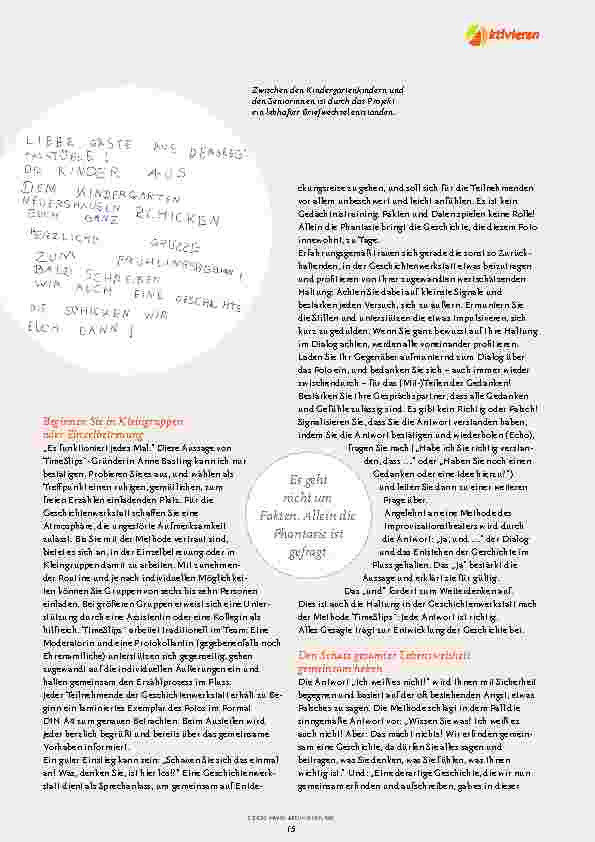 aktivieren
Zwischen den Kindergartenkindern und
den Seniorinnen ist durch das Projekt
ein lebhafter Briefwechsel entstanden.
LIEBE GÄSTE AUS DEM
DIE KINDER AUS
DEM KINDERGARTEN
NEUERSHAUSEN
EUCH GANZ SCHICKEN
HERZLICHE GRÜSSE
ZUM FRÜHLINGSBEGINN!
BALD SCHREIBEN
WIR AUCH EINE GESCHICHTE
DIE SCHICKEN WIR
EUCH DANN!
Beginnen Sie in Kleingruppen
oder Einzelbetreuung
„Es funktioniert jedes Mal.“ Diese Aussage von
TimeSlips®-Gründerin Anne Basting kann ich nur
bestätigen. Probieren Sie es aus, und wählen als
Treffpunkt einen ruhigen, gemütlichen, zum
freien Erzählen einladenden Platz. Für die
Geschichtenwerkstatt schaffen Sie eine
Atmosphäre, die ungestörte Aufmerksamkeit
zulässt. Bis Sie mit der Methode vertraut sind,
bietet es sich an, in der Einzelbetreuung oder in
Kleingruppen damit zu arbeiten. Mit zunehmen-
der Routine und je nach individuellen Möglichkei-
ten können Sie Gruppen von sechs bis zehn Personen
einladen. Bei größeren Gruppen erweist sich eine Unter-
stützung durch eine Assistentin oder eine Kollegin als
hilfreich. TimeSlips® arbeitet traditionell im Team: Eine
Moderatorin und eine Protokollantin (gegebenenfalls noch
Ehrenamtliche) unterstützen sich gegenseitig, gehen
zugewandt auf die individuellen Äußerungen ein und
halten gemeinsam den Erzählprozess im Fluss.
Jeder Teilnehmende der Geschichtenwerkstatt erhält zu Be-
ginn ein laminiertes Exemplar des Fotos im Format
DIN A4 zum genauen Betrachten. Beim Austeilen wird
jeder herzlich begrüßt und bereits über das gemeinsame
Vorhaben informiert.
Ein guter Einstieg kann sein: „Schauen Sie sich das einmal
an! Was, denken Sie, ist hier los?“ Eine Geschichtenwerk-
statt dient als Sprechanlass, um gemeinsam auf Entde-
ckungsreise zu gehen, und soll sich für die Teilnehmenden
vor allem unbeschwert und leicht anfühlen. Es ist kein
Gedächtnistraining. Fakten und Daten spielen keine Rolle!
Allein die Phantasie bringt die Geschichte, die diesem Foto
innewohnt, zu Tage.
Erfahrungsgemäß trauen sich gerade die sonst so Zurück-
haltenden, in der Geschichtenwerkstatt etwas beizutragen
und profitieren von Ihrer zugewandten wertschätzenden
Haltung: Achten Sie dabei auf kleinste Signale und
bestärken jeden Versuch, sich zu äußern. Ermuntern Sie
die Stillen und unterstützen die etwas Impulsiveren, sich
kurz zu gedulden. Wenn Sie ganz bewusst auf Ihre Haltung
im Dialog achten, werden alle voneinander profitieren.
Laden Sie Ihr Gegenüber aufmunternd zum Dialog über
das Foto ein, und bedanken Sie sich – auch immer wieder
zwischendurch – für das (Mit-)Teilen der Gedanken!
Bestärken Sie Ihre Gesprächspartner, dass alle Gedanken
und Gefühle zulässig sind. Es gibt kein Richtig oder Falsch!
Signalisieren Sie, dass Sie die Antwort verstanden haben,
indem Sie die Antwort bestätigen und wiederholen (Echo),
fragen Sie nach („Habe ich Sie richtig verstan-
den, dass …“ oder „Haben Sie noch einen
Gedanken oder eine Idee hierzu?“)
und leiten Sie dann zu einer weiteren
Frage über.
Angelehnt an eine Methode des
Improvisationstheaters wird durch
die Antwort: „Ja, und …“ der Dialog
und das Entstehen der Geschichte im
Fluss gehalten. Das „Ja“ bestärkt die
Aussage und erklärt sie für gültig.
Das „und“ fordert zum Weiterdenken auf.
Dies ist auch die Haltung in der Geschichtenwerkstatt nach
der Methode TimeSlips®: Jede Antwort ist richtig.
Alles Gesagte trägt zur Entwicklung der Geschichte bei.
Es geht
nicht um
Fakten. Allein die
Phantasie ist
gefragt
Den Schatz gesamter Lebensweisheit
gemeinsam heben
Die Antwort „Ich weiß es nicht!“ wird Ihnen mit Sicherheit
begegnen und basiert auf der oft bestehenden Angst, etwas
Falsches zu sagen. Die Methode schlägt in dem Fall die
sinngemäße Antwort vor: „Wissen Sie was? Ich weiß es
auch nicht! Aber: Das macht nichts! Wir erfinden gemein-
sam eine Geschichte, da dürfen Sie alles sagen und
beitragen, was Sie denken, was Sie fühlen, was Ihnen
wichtig ist.“ Und: „Eine derartige Geschichte, die wir nun
gemeinsam erfinden und aufschreiben, gab es in dieser
15